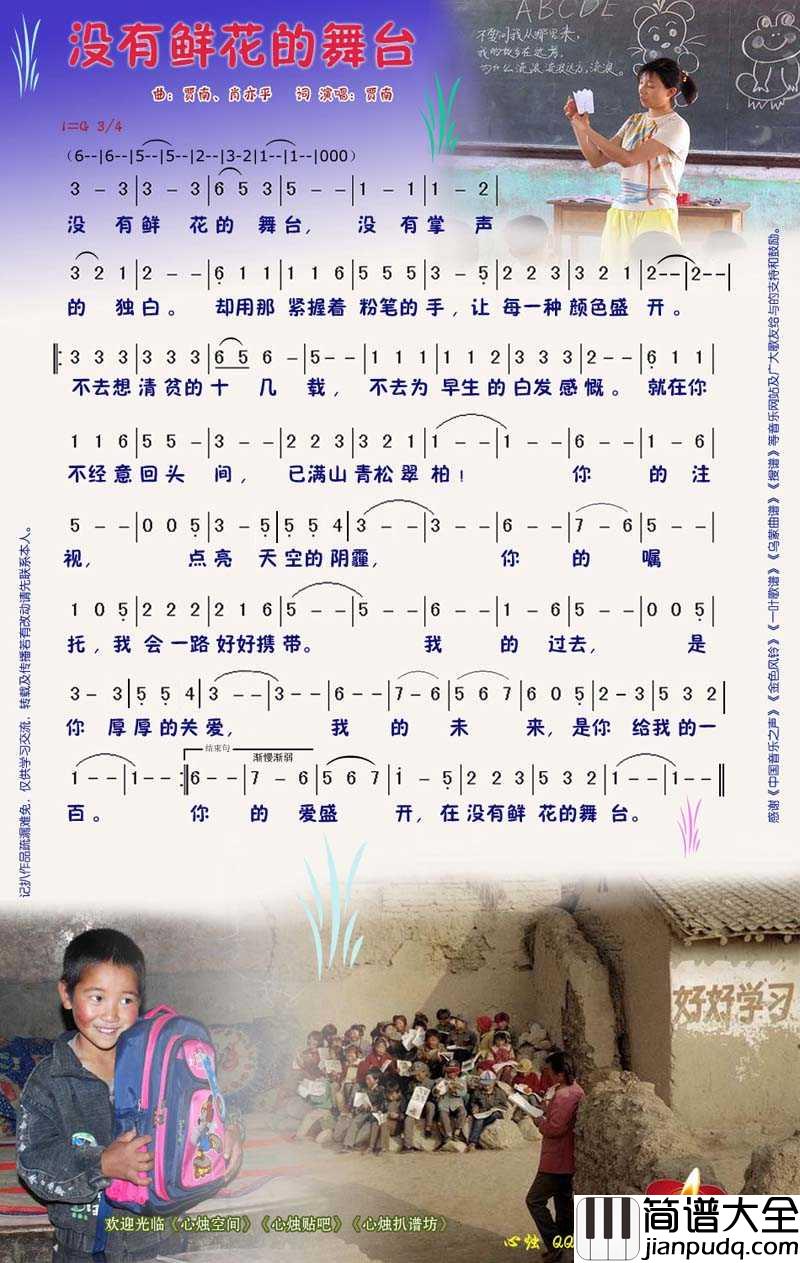 没有鲜花的舞台
曲：贾南、肖亦乎　词 演唱：贾南
1=G 3/4
(6--|6--|5--|5--|2--|3-2|1--|1--|000)
3 - 3|3 - 3|6 5 3|5 - -|1 - 1|1 - 2|
没 有鲜 花的 舞台， 没 有掌 声
3 2 1|2 - -|6 1 1|1 1 6|5 5 5|3 - 5|2 2 3|3 2 1|2--|2--|
的 独白。 却用那 紧握着 粉笔的 手，让 每一种 颜色盛 开。
‖:3 3 3|3 3 3|6 5 6-|5--|1 1 1|1 1 2|3 2 2|2--|6 1 1|
不去想 清贫的 十 几 载， 不去为 早生的 白发感 慨。 就在你
1 1 6|5 5 -|3 - -|2 2 3|3 2 1|1 - -|1 - -|6 - -|1 - 6|
不经意 回头 间， 已满山 青松翠 柏！ 你 的 注
5 - -|0 0 5|3 - 5|5 5 4|3 - -|3 - -|6 - -|7 - 6|5 - -|
视， 点 亮 天空的 阴霾， 你 的 嘱
1 0 5|2 2 2|2 1 6|5 - -|5 - -|6 - -|1 - 6|5 - -|0 0 5|
托，我 会一路 好好携 带。 我 的 过去， 是
3 - 3|5 5 4|3 - -|3 - -|6 - -|7 - 6|5 6 7|6 0 5|2 - 3|5 3 2|
你 厚 厚的关 爱， 我 的 未 来，是你 给我的一
结束句
渐慢渐弱
1 - -|1 - -:‖6 - -|7 - 6|5 6 7|1 - 5|2 2 2|5 3 2|1 - -|1 - -‖
百。 你 的 爱盛 开，在 没有鲜 花的舞 台。
记扒作品疏漏难免，仅供学习交流，转载及传播若有改动请先联系本人。
感谢《中国音乐之声》《金色风铃》《一叶歌谱》《乌蒙曲谱》《搜谱》等音乐网站及广大歌友给与的支持和鼓励。
ABCDE
不要问我从哪里来，
我的故乡在远方，
为什么流浪
好好学习
欢迎光临《心烛空间》《心烛贴吧》《心烛扒谱坊》
心烛 QQ
简谱大全
jianpudq.com